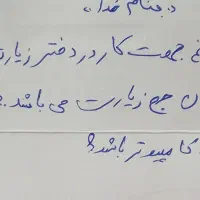 بنام خدا
جهت کار در دفتر زیار
حج زیارت می باشد.
کامپیوتر باشد؟